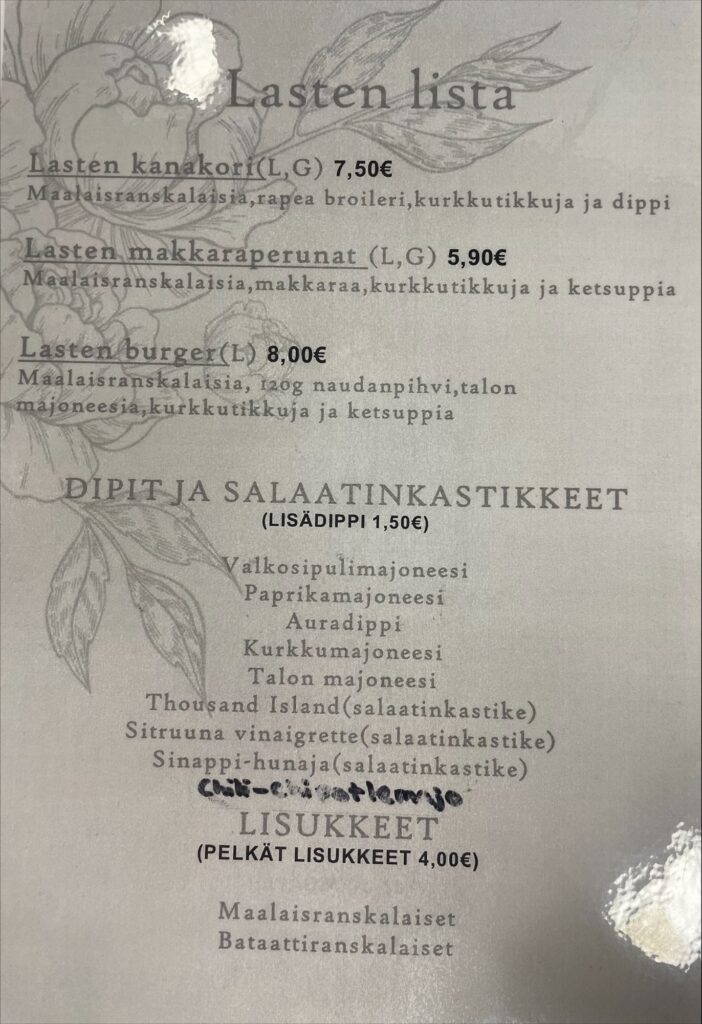 Lasten lista
Lasten kanakori(L,G) 7,50€
Maalaisranskalaisia,rapea broileri,kurkkutikkuja ja dippi
Lasten makkaraperunat (L,G) 5,90€
Maalaisranskalaisia,makkaraa,kurkkutikkuja ja ketsuppia
Lasten burger(L) 8,00€
Maalaisranskalaisia, 120g naudanpihvi,talon
majoneesia,kurkkutikkuja ja ketsuppia
DIPIT JA SALAATINKASTIKKEET
(LISÄDIPPI 1,50€)
Valkosipulimajoneesi
Paprikamajoneesi
Auradippi
Kurkkumajoneesi
Talon majoneesi
Thousand Island(salaatinkastike)
Sitruuna vinaigrette(salaatinkastike)
Sinappi-hunaja(salaatinkastike)
Chili-
LISUKKEET
(PELKÄT LISUKKEET 4,00€)
Maalaisranskalaiset
Bataattiranskalaiset